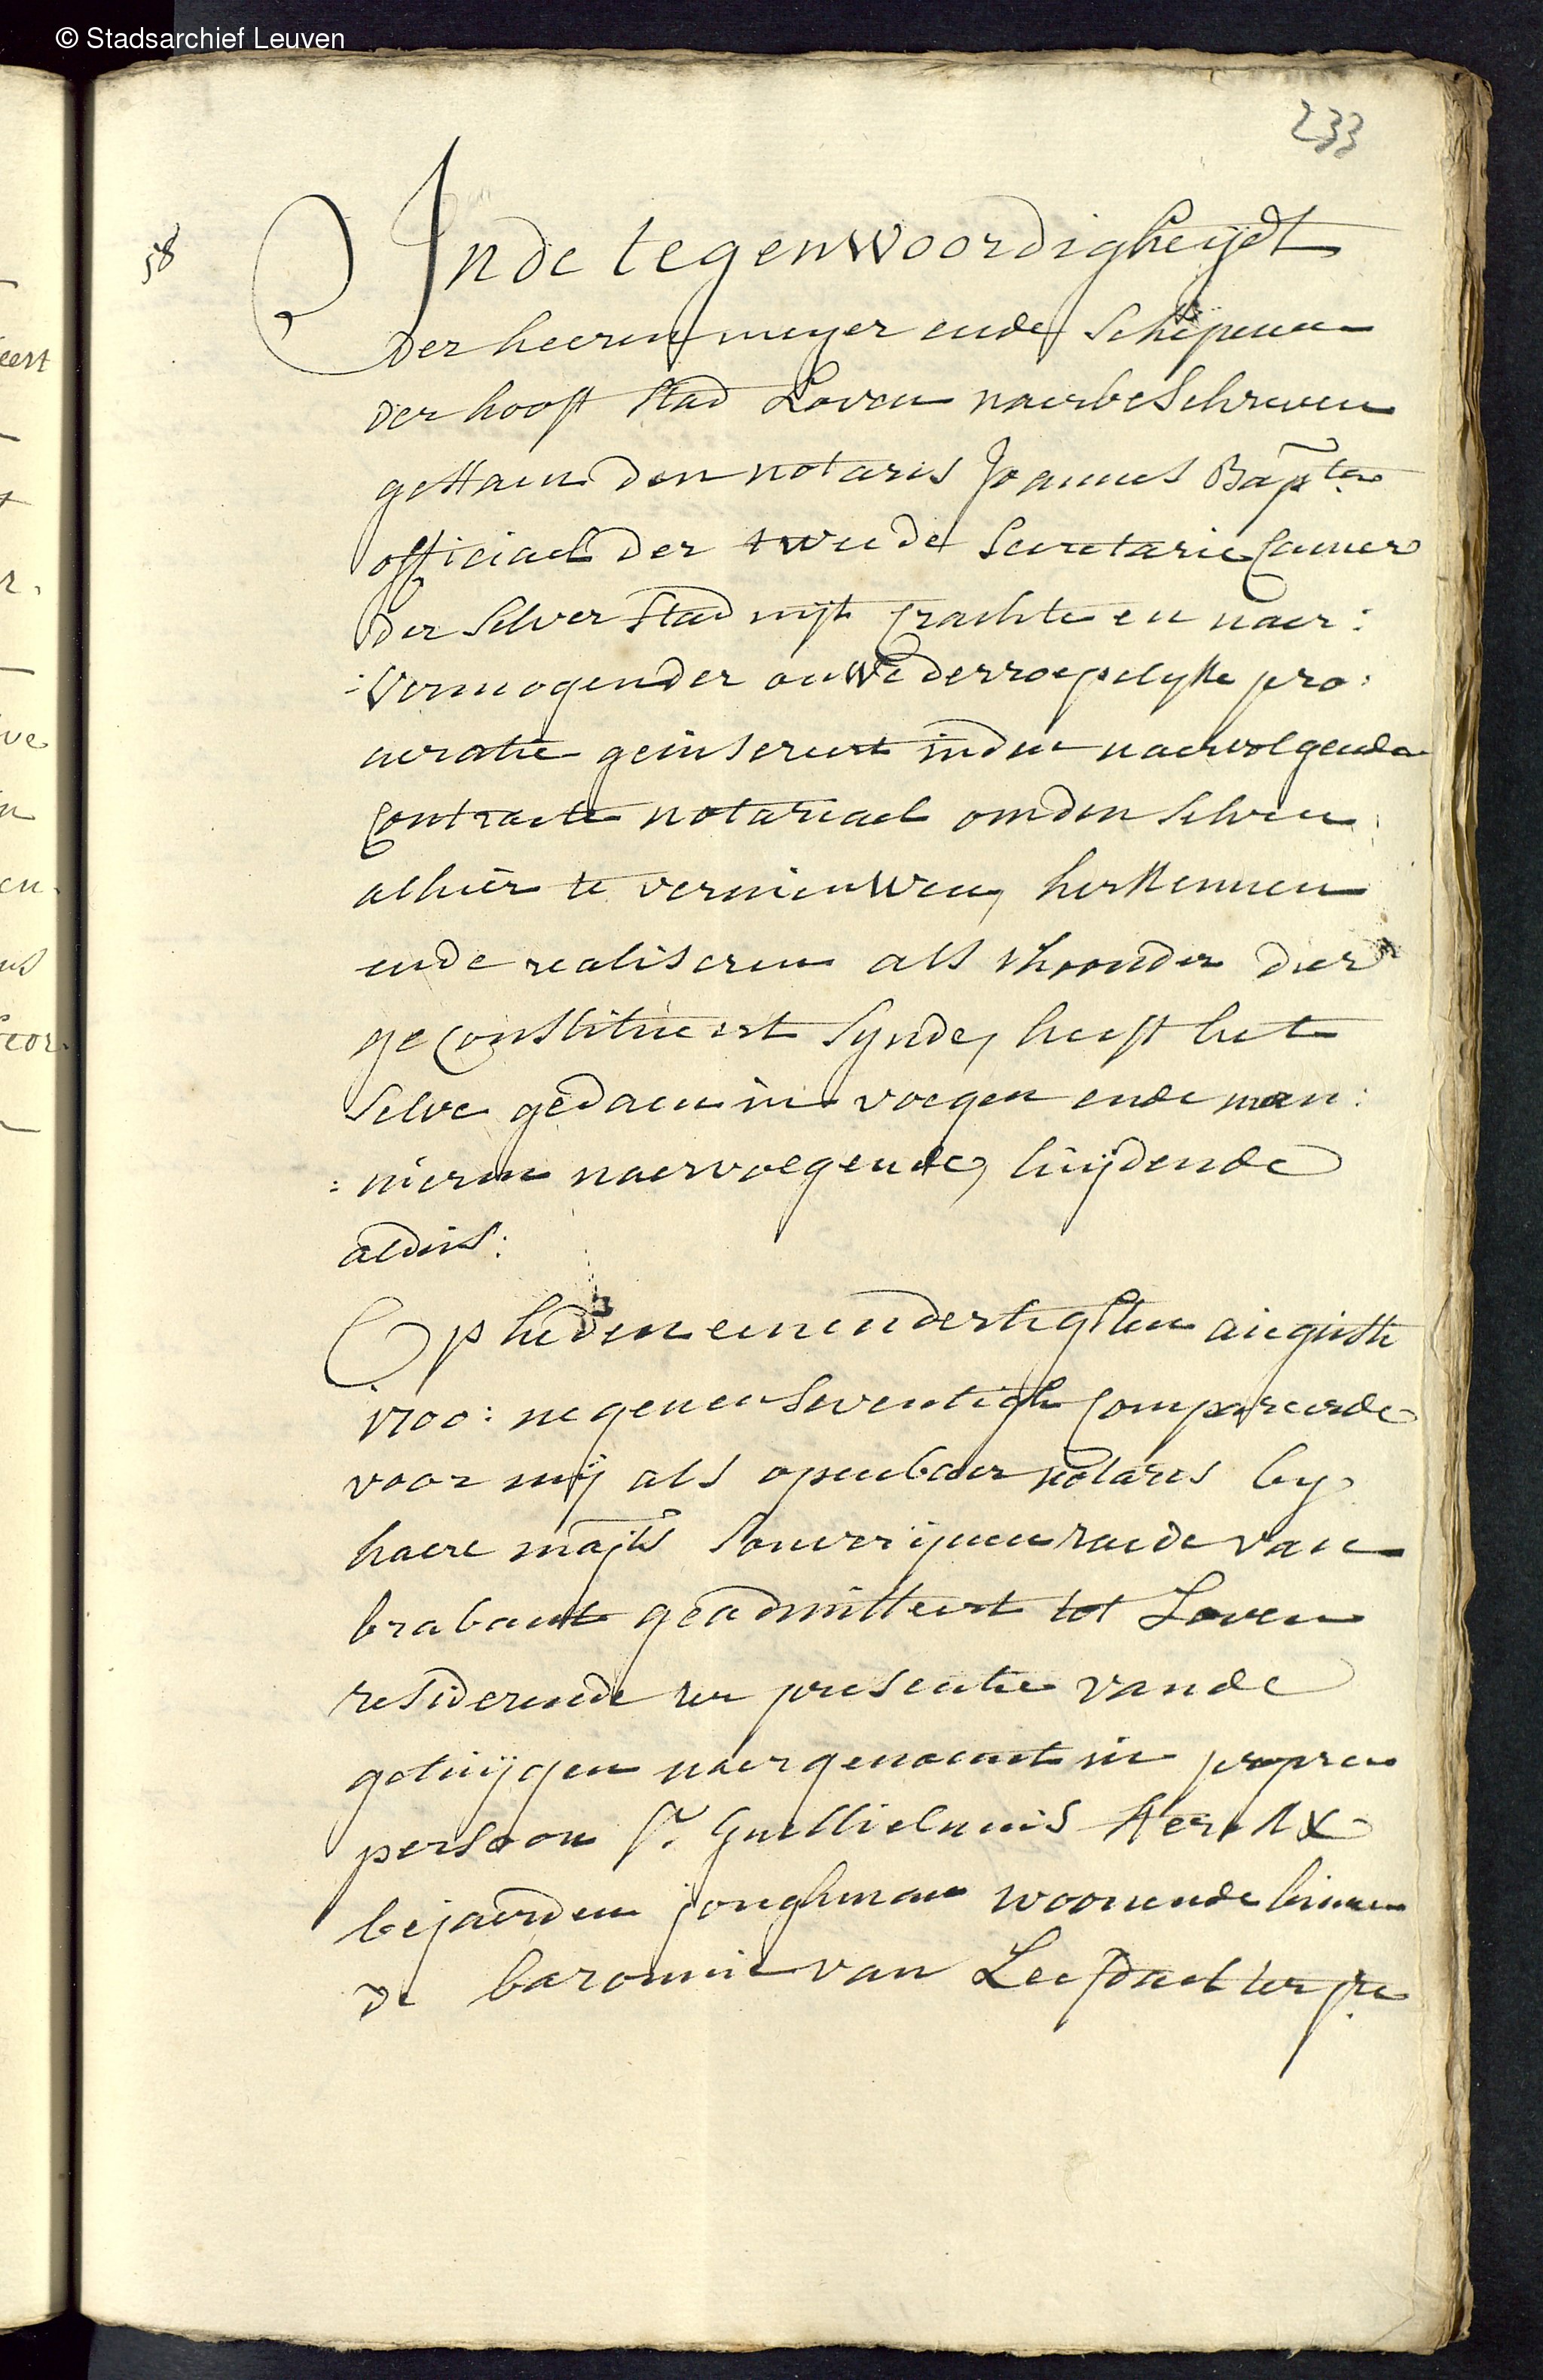 © Stadsarchief Leuven
233
58
In de tegenwoordigheijdt
der heeren meyer ende schepenen
der hooft stad Loven naerbeschreven
gestaen den notaris Joannes Bap.ta
officiael der tweede secretarie Camer
der selver stad uijt crachte en naer:
:vermogen der onwederroepelyke pro:
curatie geinsereert in den naervolgende
Contracte notariael om den selven
alhier te vernieuwen, herkennen
ende realiseren als thoonder der
geconstitueert synde, heeft het
selve gedaen in voegen ende man:
:nieren naervolgende, luijdende
aldus:
Op heden eenendertighsten auguste
1700: negenen seventigh compareerde
voor mij als openbaer notaris by
haere majts souverijnen raede van
brabant geadmitteert tot Loven
residerende ter presentie van de
getuijgen naergenoemt in propren
persoon Sr. Guillielmus Kerckx
bejaerden jonghman woonende binnen
de baronnie van Leefdael ter pre
eert
ve
n
en
us